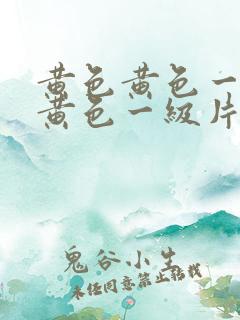 黄色黄色一
黄色一级片
鬼谷小生
未经同意禁止转载